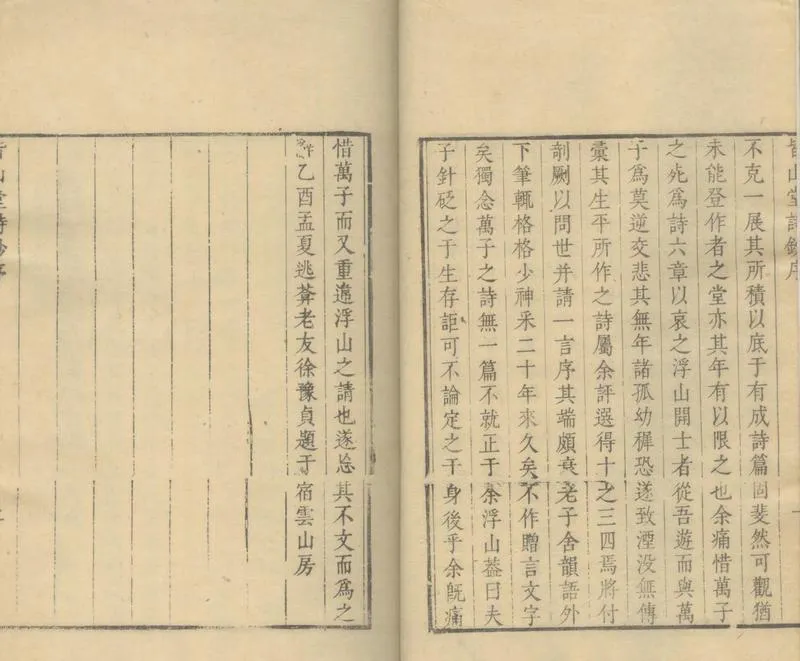 皆山堂詩鈔序
不克一展其所積以底于有成詩篇固斐然可觀猶
未能登作者之堂亦其年有以限之也余痛惜萬子
之死爲詩六章以哀之浮山開士者從吾遊而與萬
子爲莫逆交悲其無年諸孤幼穉恐遂致湮没無傳
彚其生平所作之詩屬余評選得十之三四焉將付
剞劂以問世并請一言序其端頗衰老子舍韻語外
下筆輒格格少神采二十年來久矣不作贈言文字
矣獨念萬子之詩無一篇不就正于余浮山葢曰夫
子針砭之于生存詎可不論定之于身後乎余旣痛
惜萬子而又重違浮山之請也遂忘其不文而爲之
乙酉孟夏逃葊老友徐豫貞題于宿雲山房
皆山堂詩鈔序